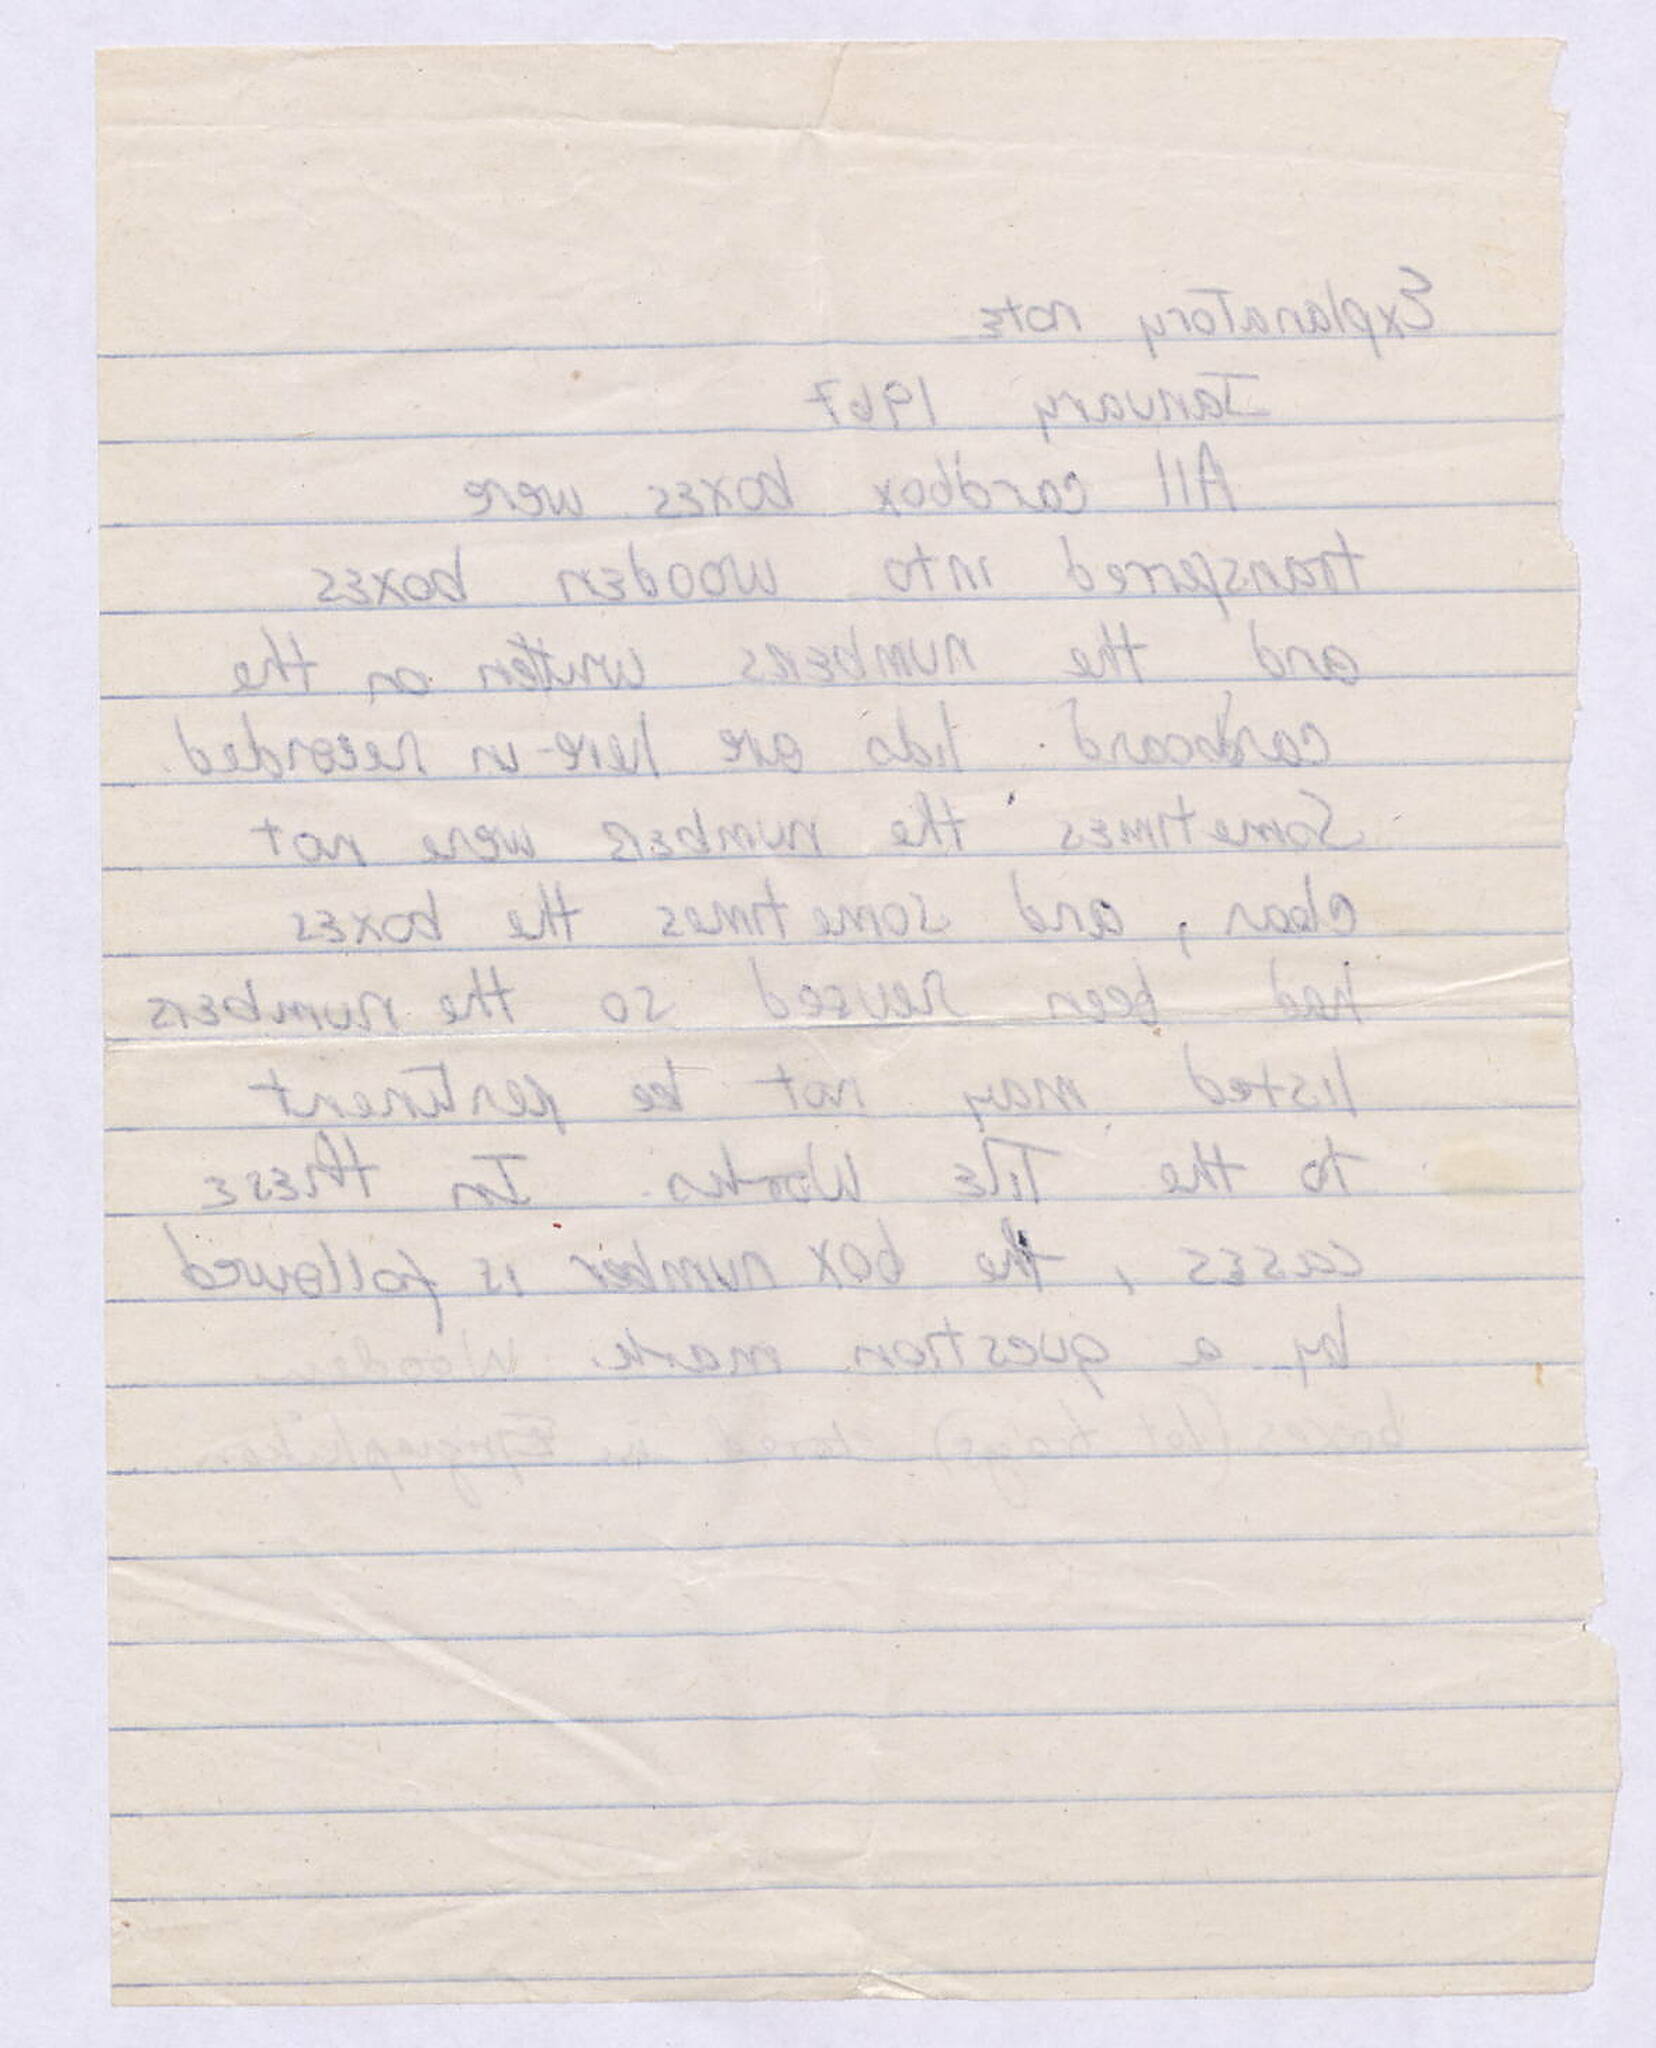 Explanatory note
January 1967
All cardbox boxes were
transferred into wooden boxes
and the numbers written on the
cardboard lids are here-in recorded.
Sometimes the numbers were not
clear, and sometimes the boxes
had been reused so the numbers
listed may not be pertinent
to the Tile Works. In these
cases, the box number is followed
by a question mark. Wooden
boxes (lot trays) stored in